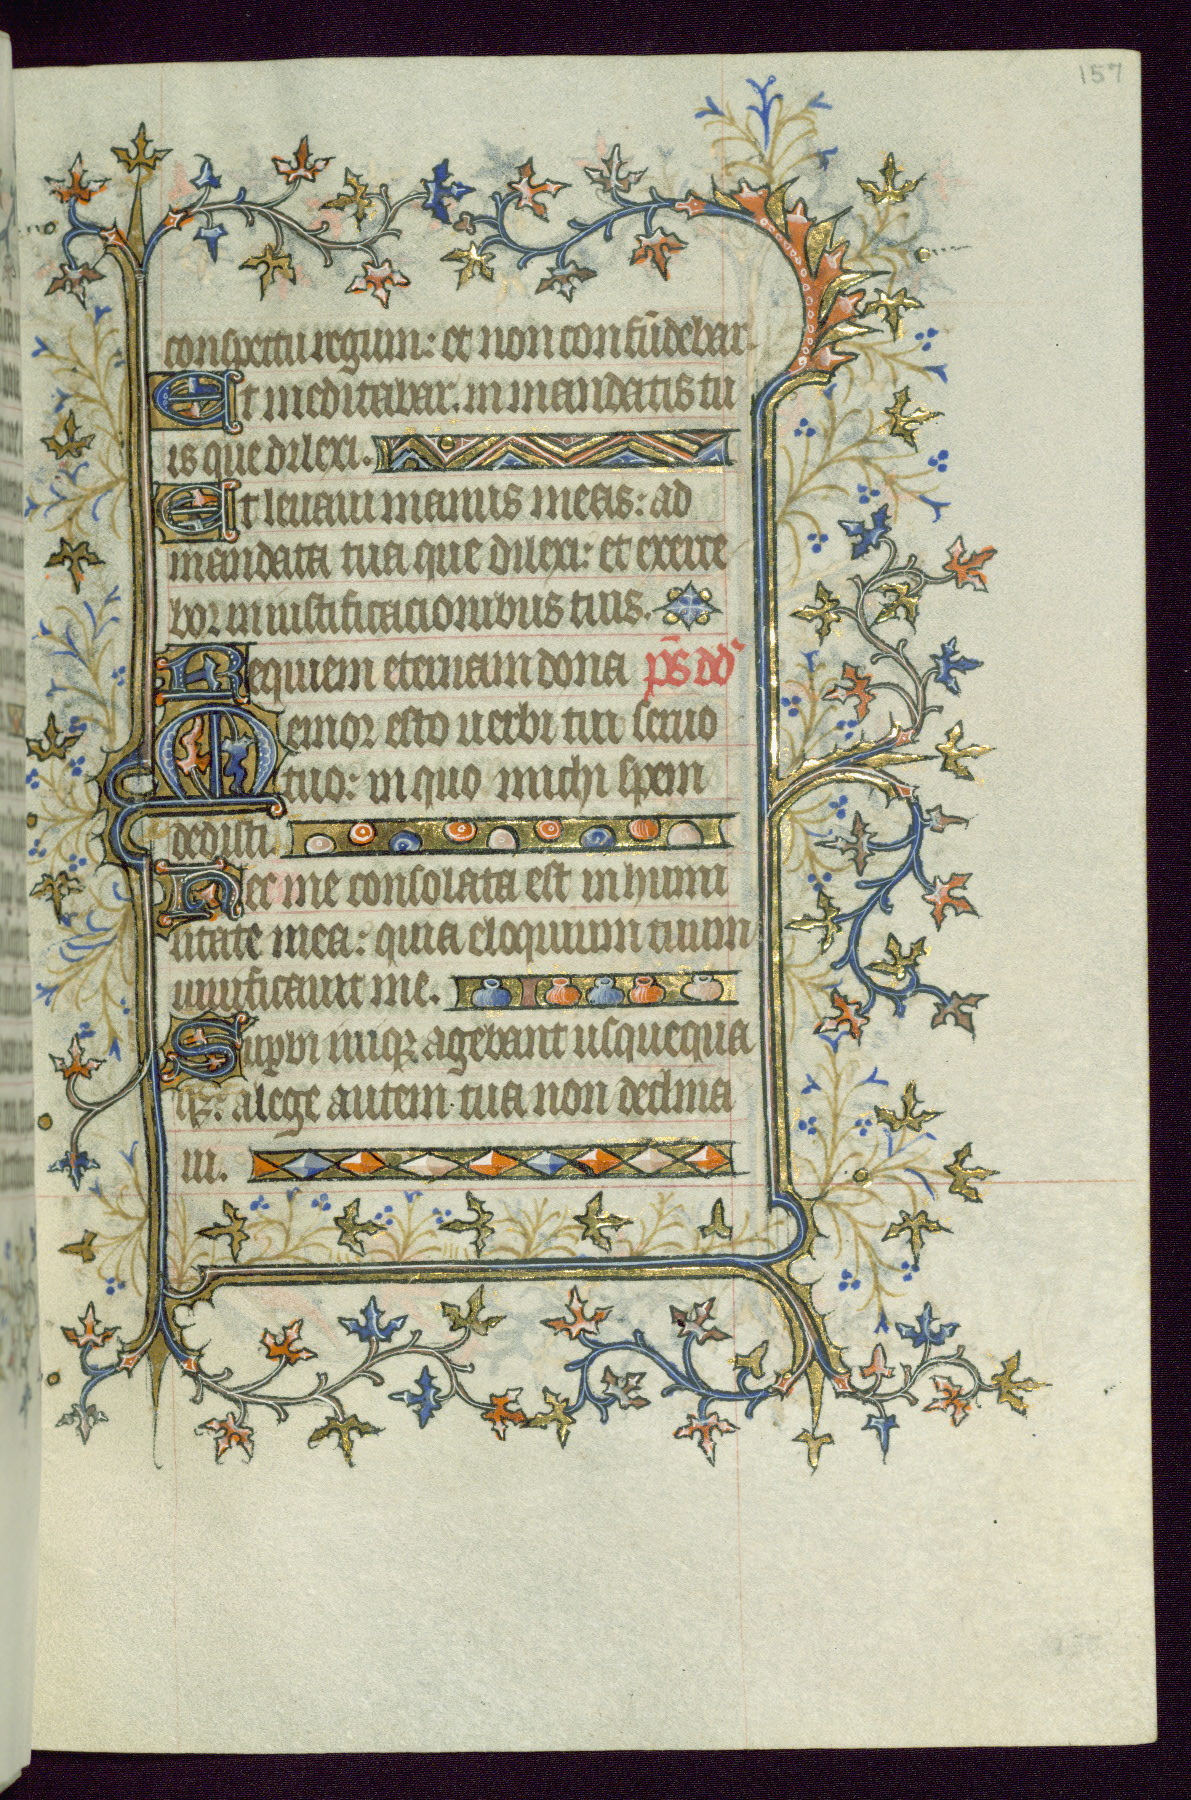 157
conspectu regum: et non confūdebar.
Et meditabar. in mandatis tu
is que dilexi.
Et levavi manus meas: ad
mandata tua que dilexi: et exerce
bor in iustificacionibus tuis.
Requiem eternam dona p̄s dd'
Memor esto verbi tui servo
tuo: in quo michi spem
dedisti.
Hec me consolata est in humi
litate mea: quia eloquium tuum
vivificavit me.
Supbi iniq; agebant usquequa
q;: a lege autem tua non declina
vi.